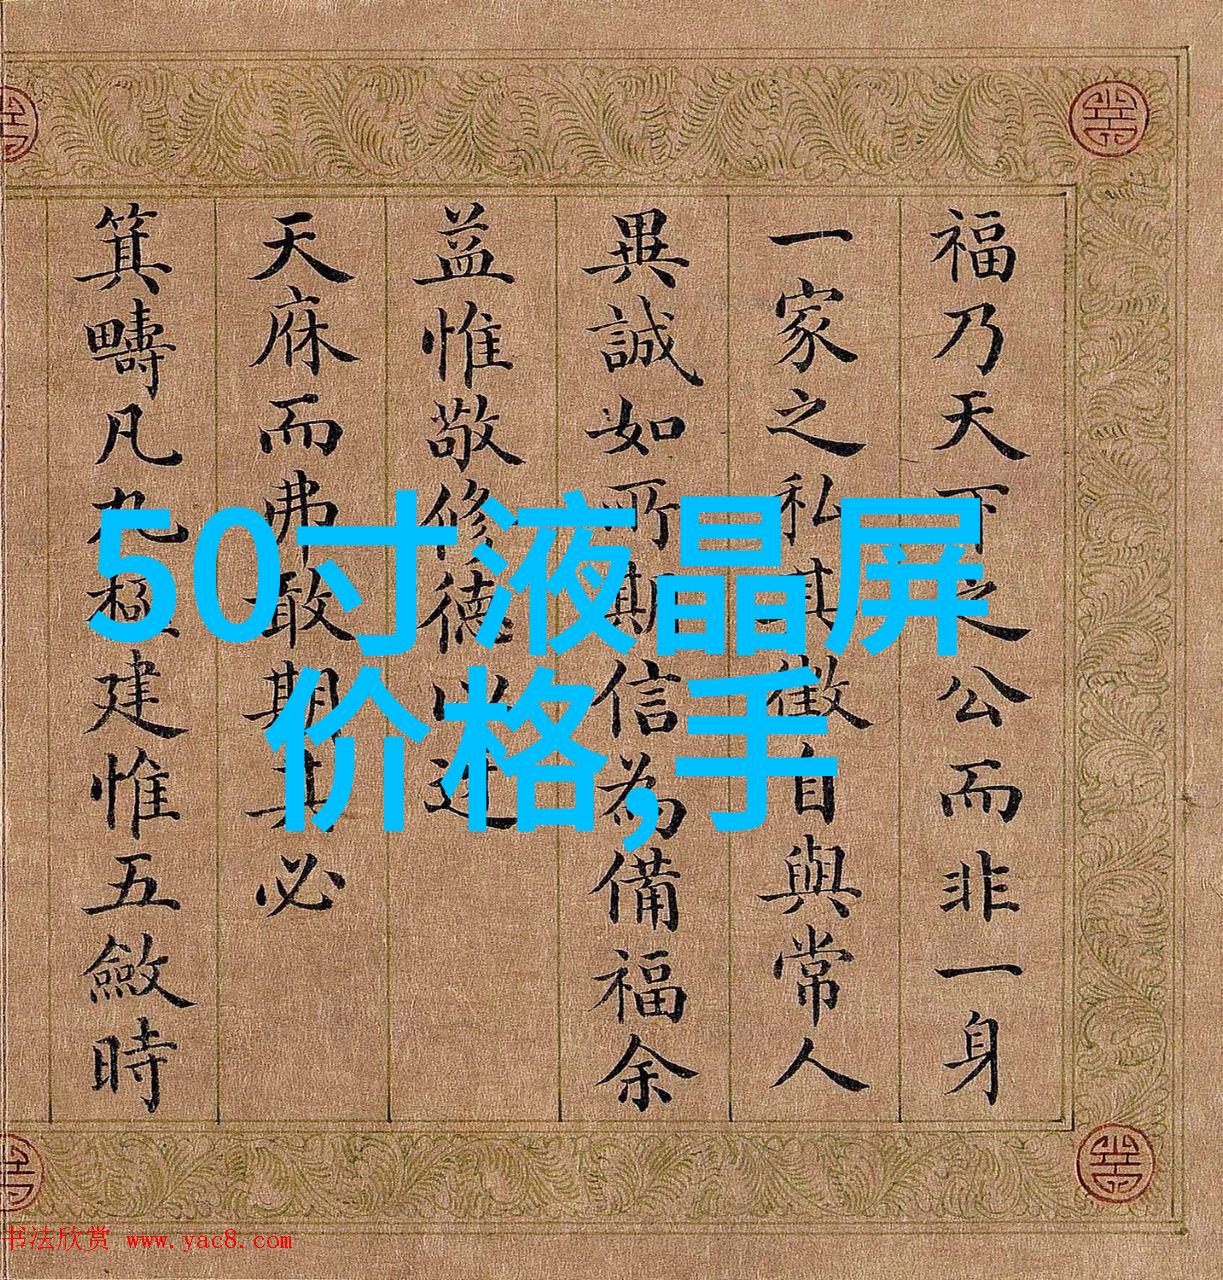 福乃天下之公而非一身
一家之私其徵自與常人
異誠如所期信為備福余
益惟敬修德以迓
天庥而弗敢期其必
箕疇凡九極建惟五斂時
50寸液晶屏
价格,手
书法欣赏 www.yac8.com